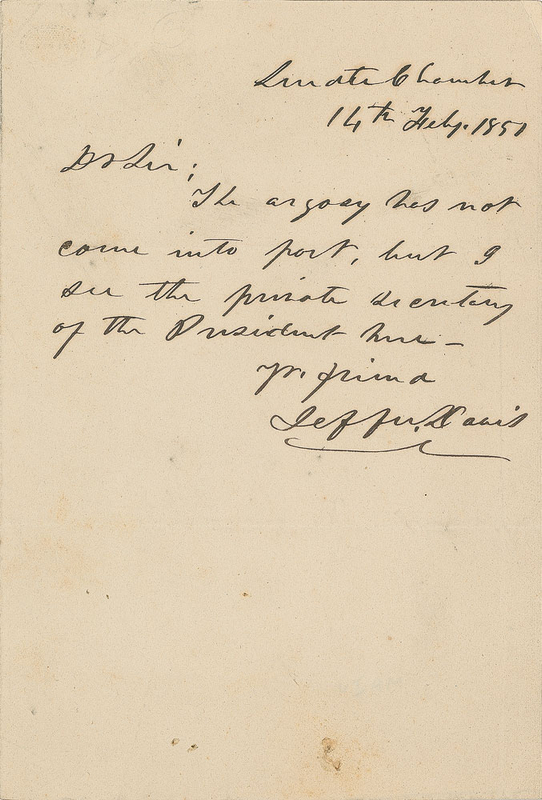 Senate Chamber
14th Feby. 1851
Dr Sir;
The argosy has not
come into port, but I
see the private secretary
of the President here –
Yr. friend
Jeffn. Davis